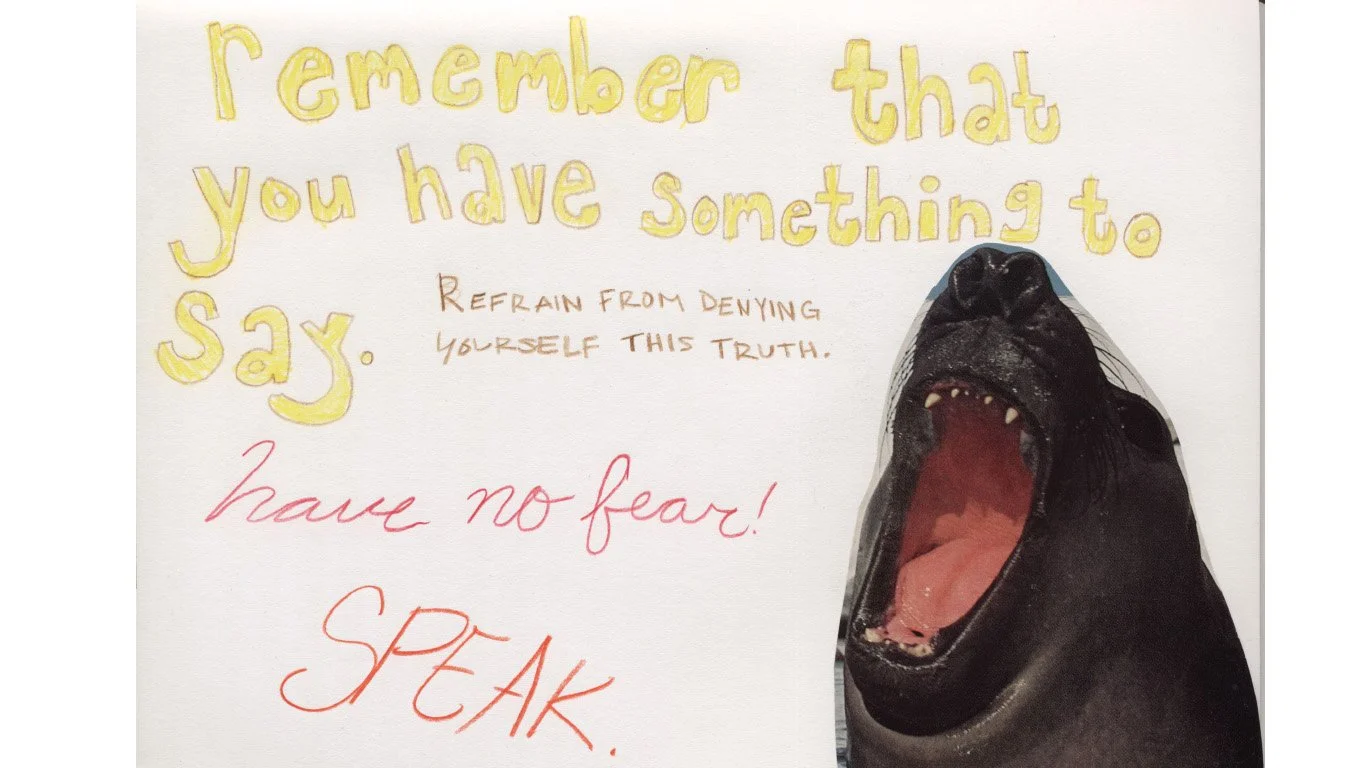 remember that
you have something to
say.
REFRAIN FROM DENYING
YOURSELF THIS TRUTH.
have no fear!
SPEAK.